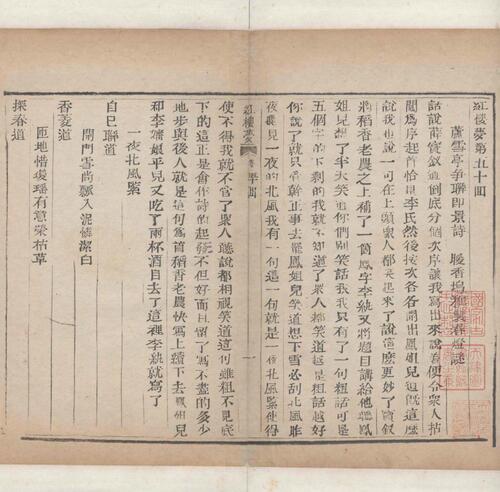 紅樓夢第五十回
蘆雪亭爭聯即景詩　暖香塢雅製春燈謎
話說薛寶釵道到底分個次序讓我寫出來說着便令衆人拈
鬮為序起首恰是李氏然後按次各各開出鳳姐兒道旣這麽
說我也說一句在上頭衆人都笑起來了說這麽更妙了寶釵
將稻香老農之上補了一個鳳字李紈又將題目講給他聽鳳
姐兒想了半天笑道你們別笑話我我只有了一句粗話可是
五個字的下剩的我就不知道了衆人都笑道越是粗話越好
你說了就只管幹正事去罷鳳姐兒笑道想下雪必刮北風昨
夜聽見一夜的北風我有一句這一句就是一夜北風緊使得
紅樓夢　第五十回　一
使不得我就不管了衆人聽說都相視笑道這句雖粗不見底
下的這正是會作詩的起法不但好而且留了寫不盡的多少
地步與後人就是這句為首稻香老農快寫上續下去鳳姐兒
和李嬸娘平兒又吃了兩杯酒自去了這裡李紈就寫了
一夜北風緊
自己聯道
開門雪尚飄入泥憐潔白
香菱道
匝地惜瓊瑤有意榮枯草
探春道